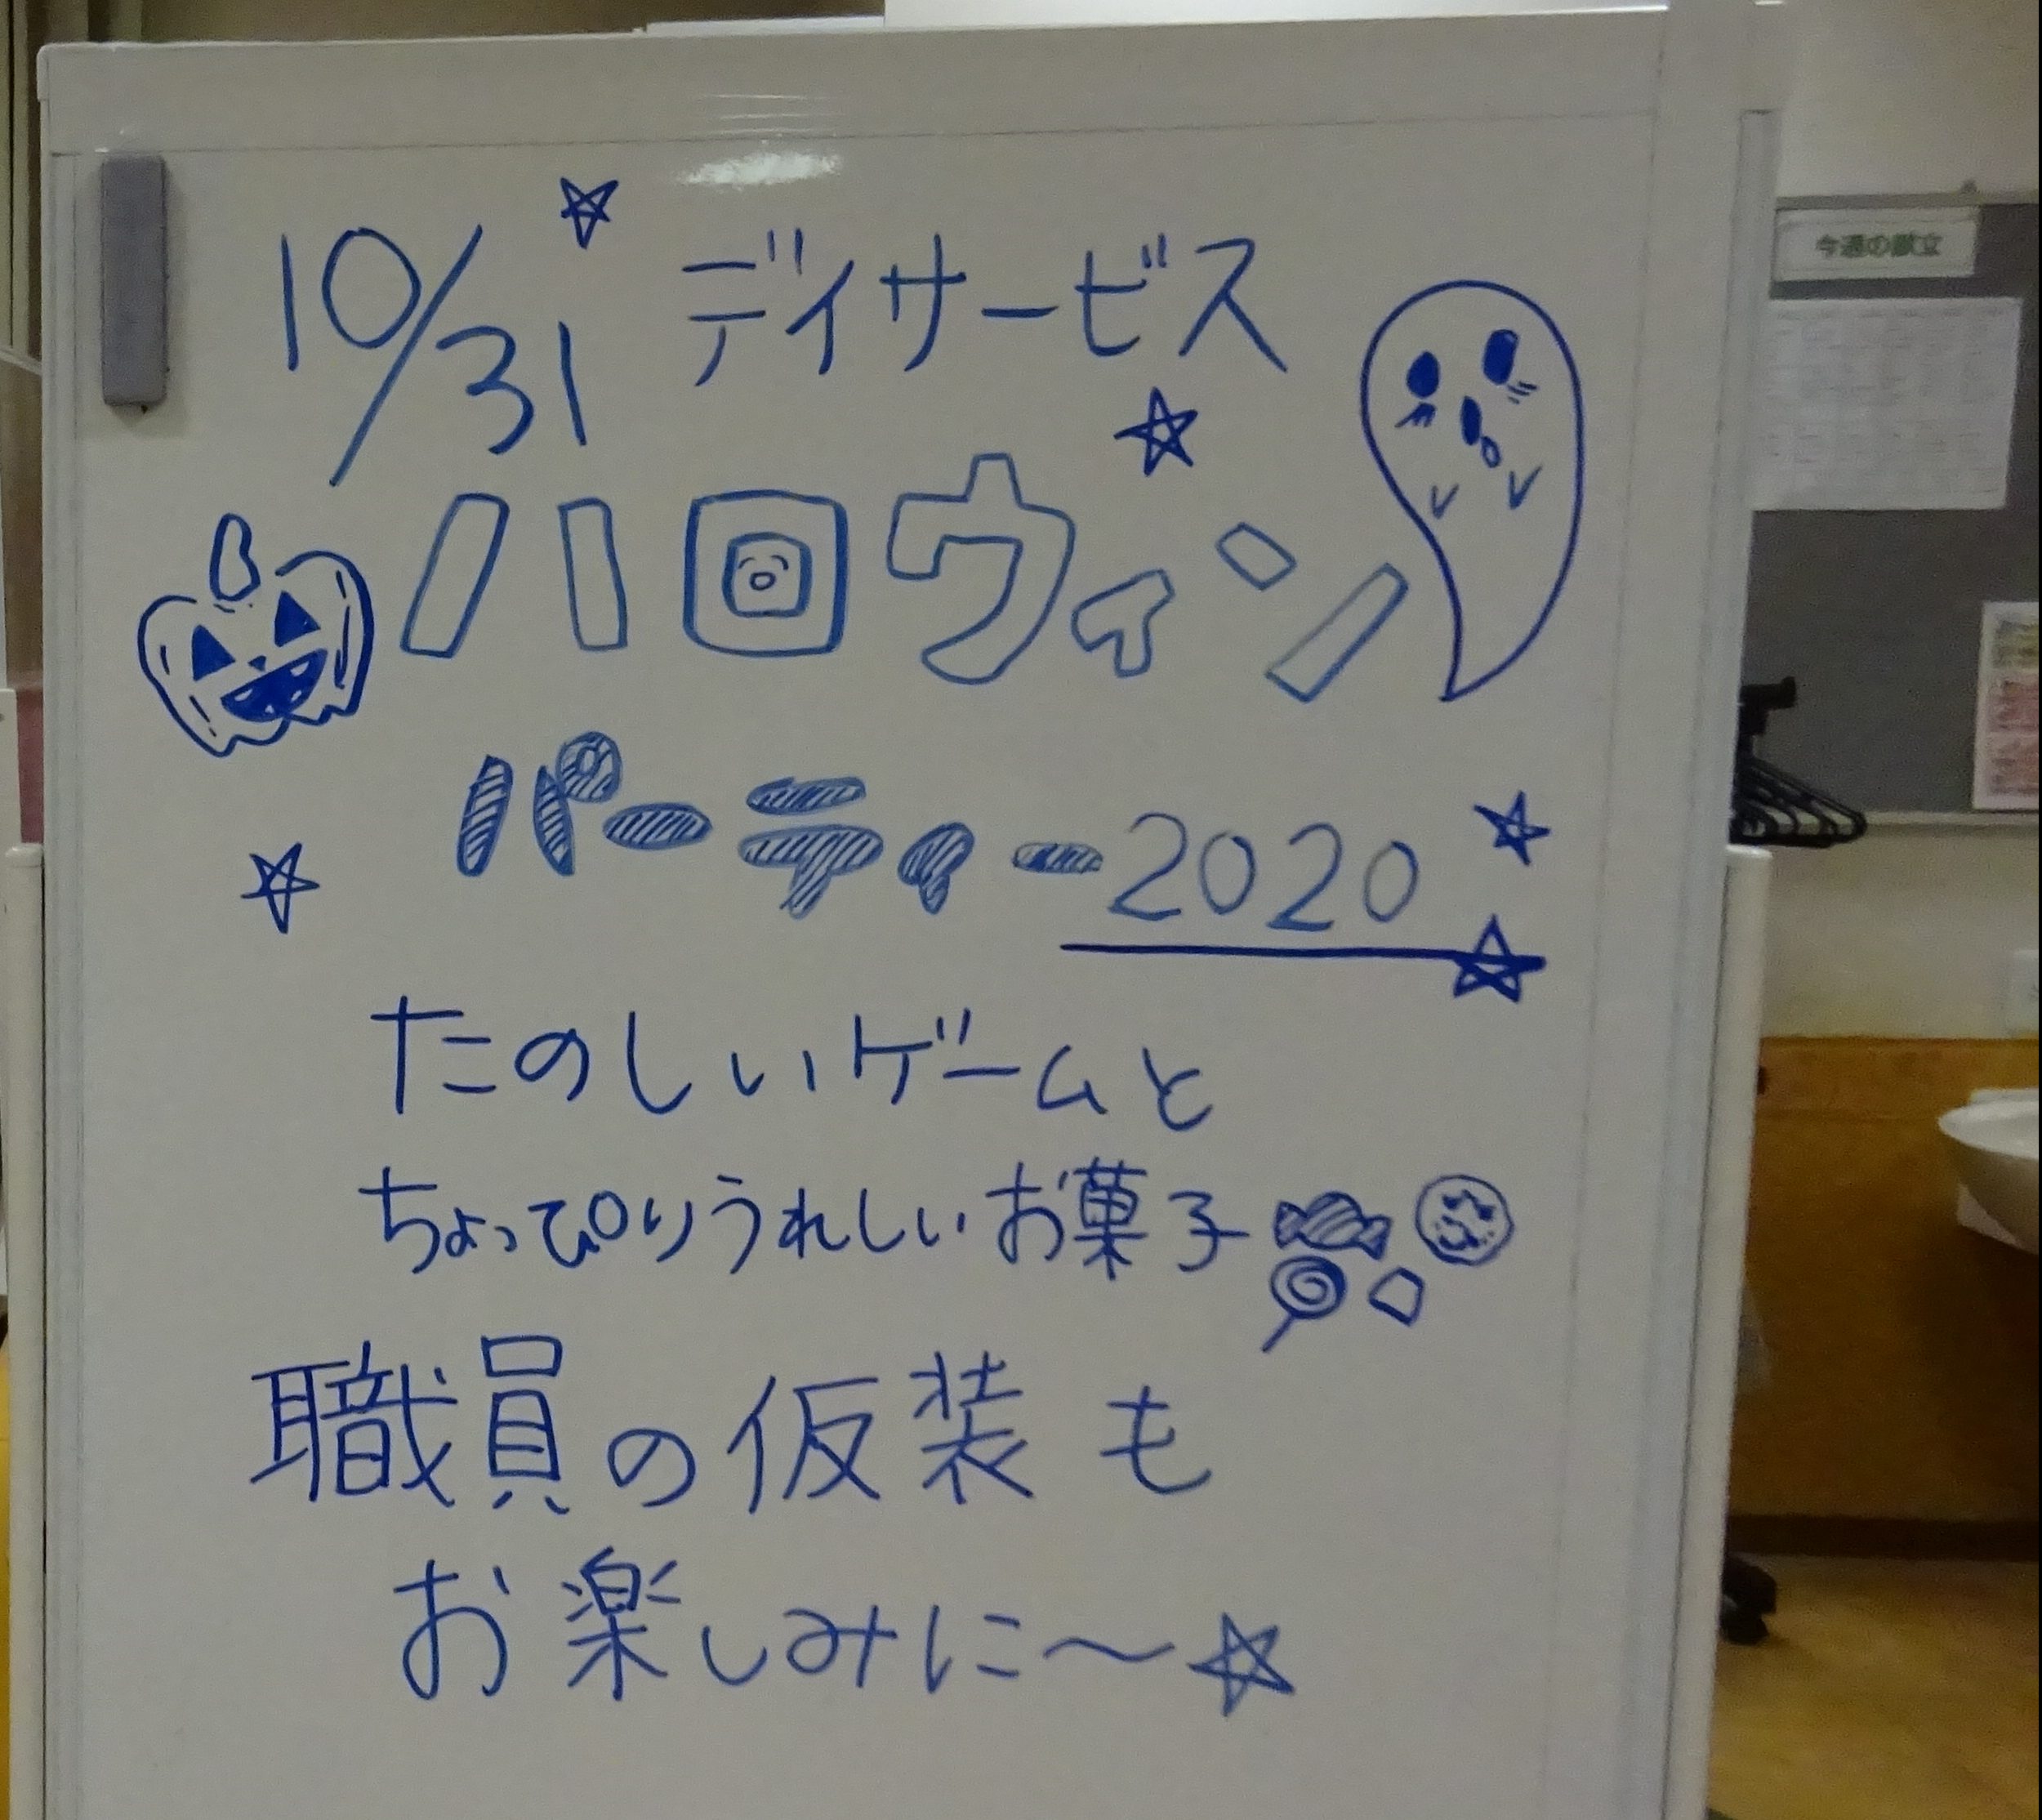 10/31 デイサービス
ハロウィン
パーティー2020
たのしいゲームと
ちょっぴりうれしいお菓子
職員の仮装も
お楽しみに〜☆
今週の献立